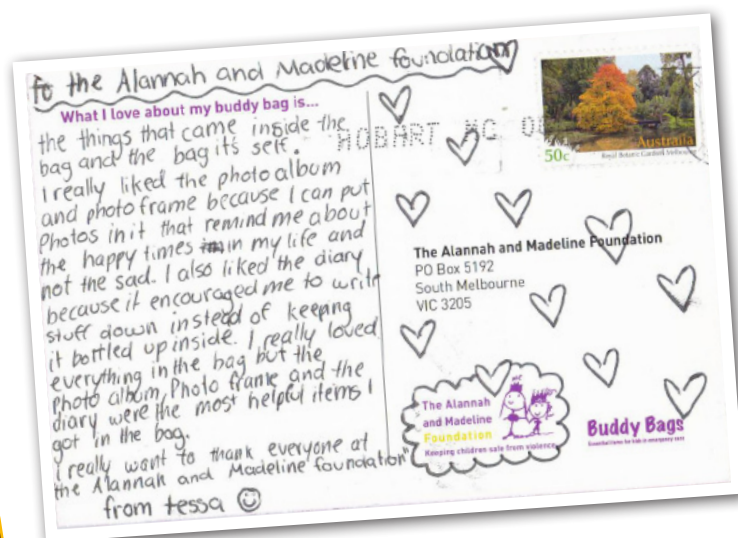 To the Alannah and Madeline foundation
What I love about my buddy bag is...
the things that came inside the
bag and the bag it's self.
I really liked the photo album
and photo frame because I can put
photos in it that remind me about
the happy times in my life and
not the sad. I also liked the diary
because it encouraged me to write
stuff down instead of keeping
it bottled up inside. I really loved
everything in the bag but the
photo album, Photo frame and the
diary were the most helpful items I
got in the bag.
I really want to thank everyone at
the Alannah and Madeline foundation
from tessa
HOBART MC
Australia
50c
Royal Botanic Gardens Melbourne
The Alannah and Madeline Foundation
PO Box 5192
South Melbourne
VIC 3205
The Alannah
and Madeline
Foundation
Keeping children safe from violence
Buddy Bags
Essential items for kids in emergency care